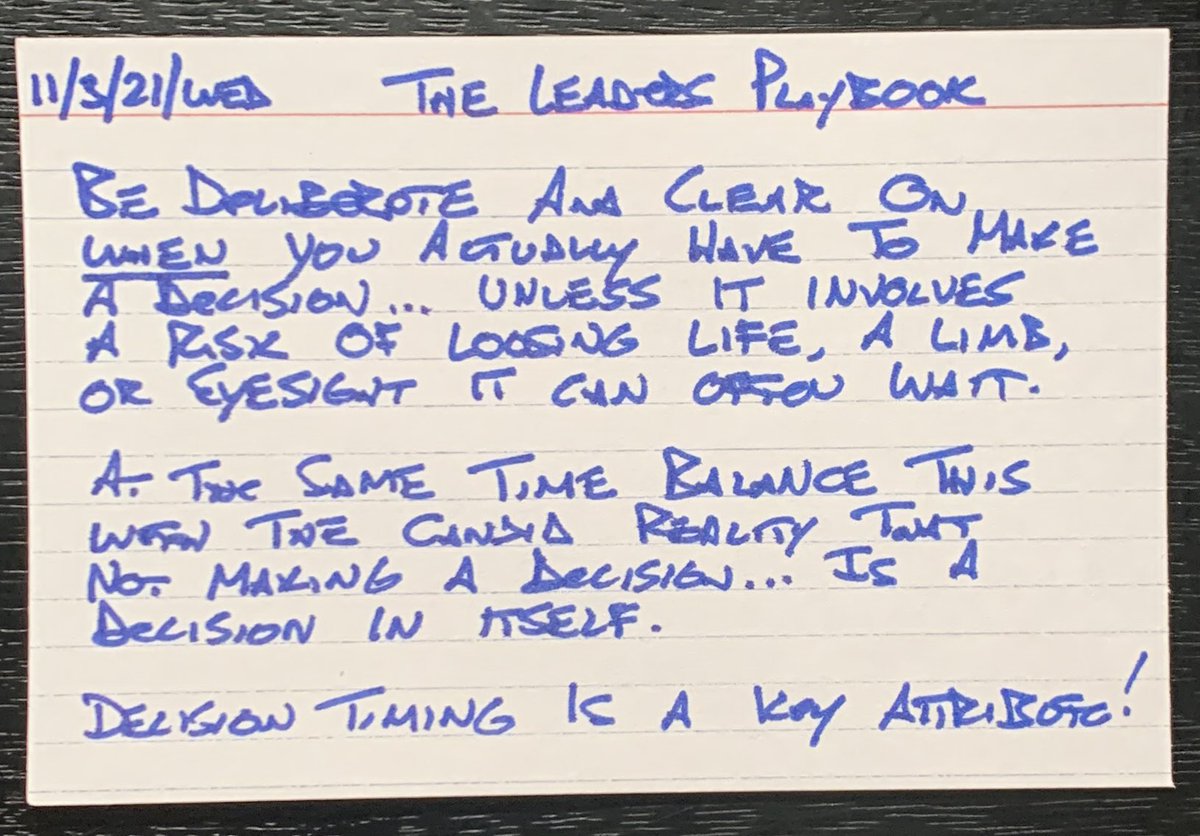 11/3/21/WED THE LEADERS PLAYBOOK
BE DELIBERATE AND CLEAR ON
WHEN YOU ACTUALLY HAVE TO MAKE
A DECISION... UNLESS IT INVOLVES
A RISK OF LOOSING LIFE, A LIMB,
OR EYESIGHT IT CAN OFTEN WAIT.
AT THE SAME TIME BALANCE THIS
WITH THE CANDID REALITY THAT
NOT MAKING A DECISION... IS A
DECISION IN ITSELF.
DECISION TIMING IS A KEY ATTRIBUTE!